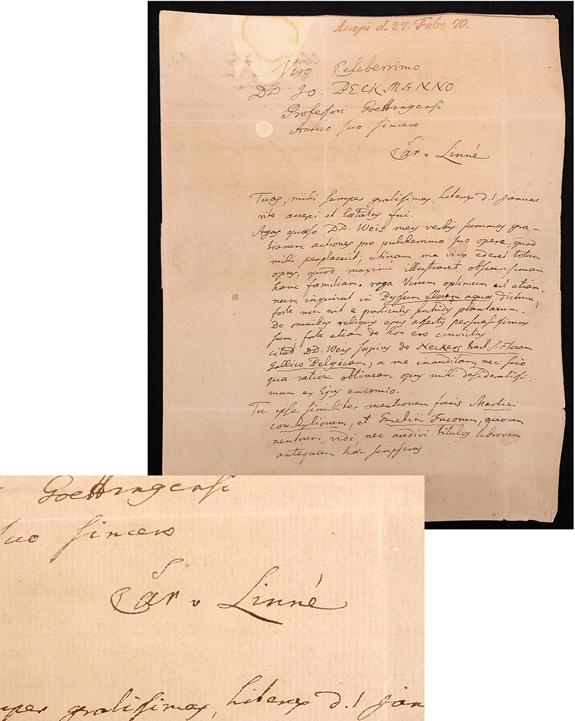 Accepi d. 27. Febr. 70.
Viro Celeberrimo
DD Jo. BECKMANNO
Professori Goettingensi
Amico suo sincero
Car v Linné
Tuas, mihi semper gratissimas, literas d. 1 januar
rite accepi et laetatus fui.
Agas quaeso DD. Weis meis verbis summas gra-
tiarum actiones pro pulcherrimo suo opere, quod
mihi perplacuit, utinam ea vivo ederet totum
opus, quod maxime illustraret obscurissimam
hanc familiam. roga Virum optimum ut etiam
num inquirat in Byssum florem aquae dictum,
forte non erit e particulis putridis plantarum.
De omnibus reliquis ejus assertis persuasissimus
sum, forte etiam de hoc ero convictus
citat DD. Weis saepius de Neckers
Gallico Belgicam, a me inauditam, nec scio
qua ratione obtineam opus mihi desideratissi-
mum ex ejus encomio.
Tu ipse similiter mentionem facis Martini
conchyliorum, et Gmelini Fucorum, quorum
neutrum vidi, nec audivi titulos librorum
antequam haec scripseras
Goettingensi
suo sincero
Car v Linné
mper gratissimas, literas d. 1 jan